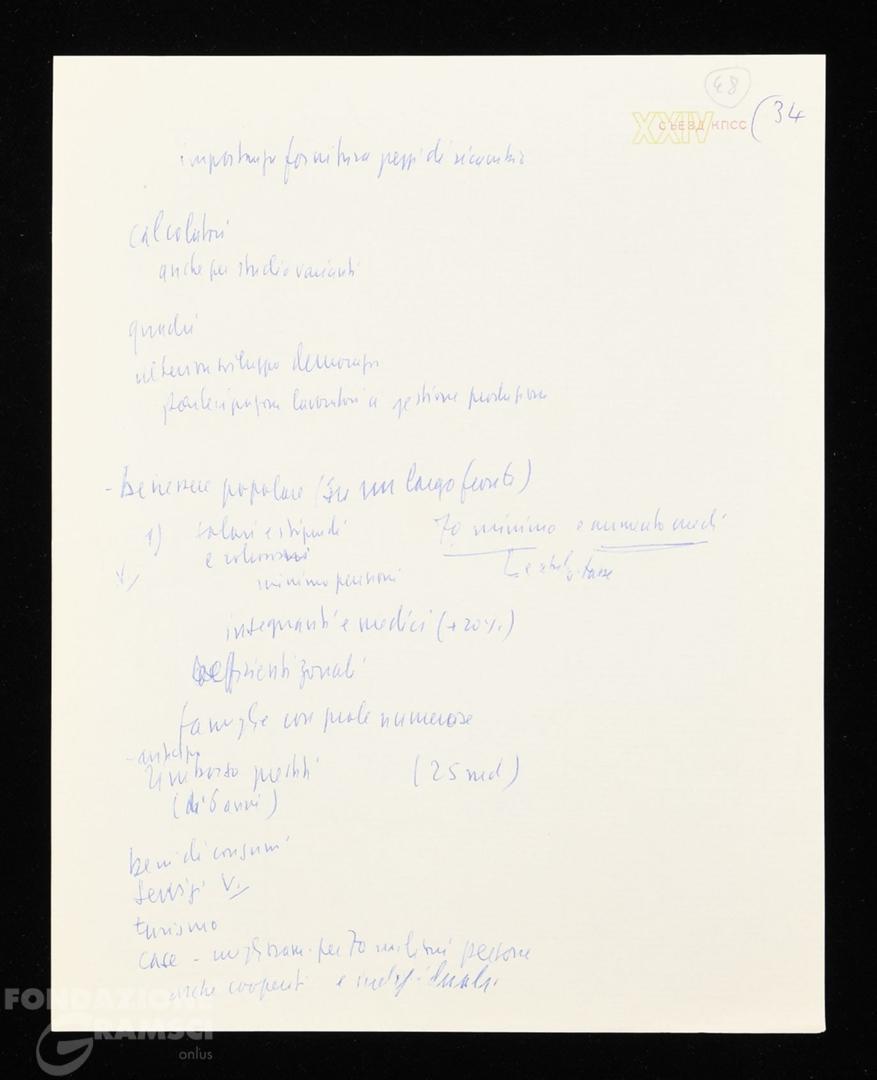 48
(34
XXIV СЪЕЗД КПСС
importanza fornitura pezzi di ricambio
calcolatori
anche per studio varianti
quadri
ulteriore sviluppo democraz
partecipazione lavoratori a gestione produzione
- benessere popolare (su un largo fronte)
1) salari e stipendi 70 minimo e aumento medi
e
V.
minimo pensioni
insegnanti e medici (+20%)
coefficienti zonali
famiglie con prole numerosa
- anticipo
rimborso prestiti (25 md)
(di 6 anni)
beni di consumi
servizi V.
turismo
case - miglioram. per 70 milioni persone
anche cooperati e individuali
FONDAZIONE
GRAMSCI
onlus